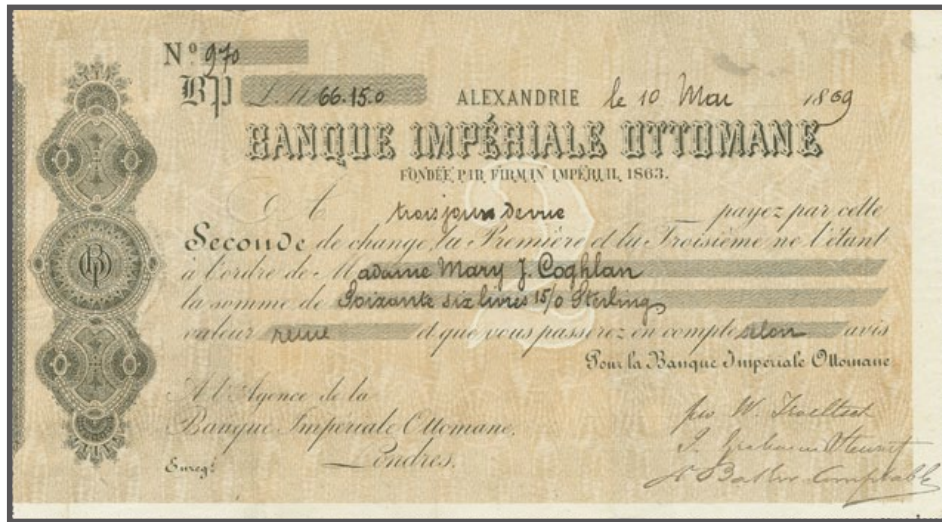 Nº 970
BP L. St 66.15.0 ALEXANDRIE le 10 Mai 1869
BANQUE IMPÉRIALE OTTOMANE
FONDÉE PAR FIRMAN IMPÉRIAL 1863.
2
A trois jours de vue payez par cette
Seconde de change, la Première et la Troisième ne l'étant
à l'ordre de Madame Mary J. Coghlan
la somme de Soixante six livres 15/0 Sterling
valeur reçue et que vous passerez en compte selon avis
Pour la Banque Impériale Ottomane
A l'Agence de la
Banque Impériale Ottomane.
Londres.
Enregt
BP
pro W.
Comptable